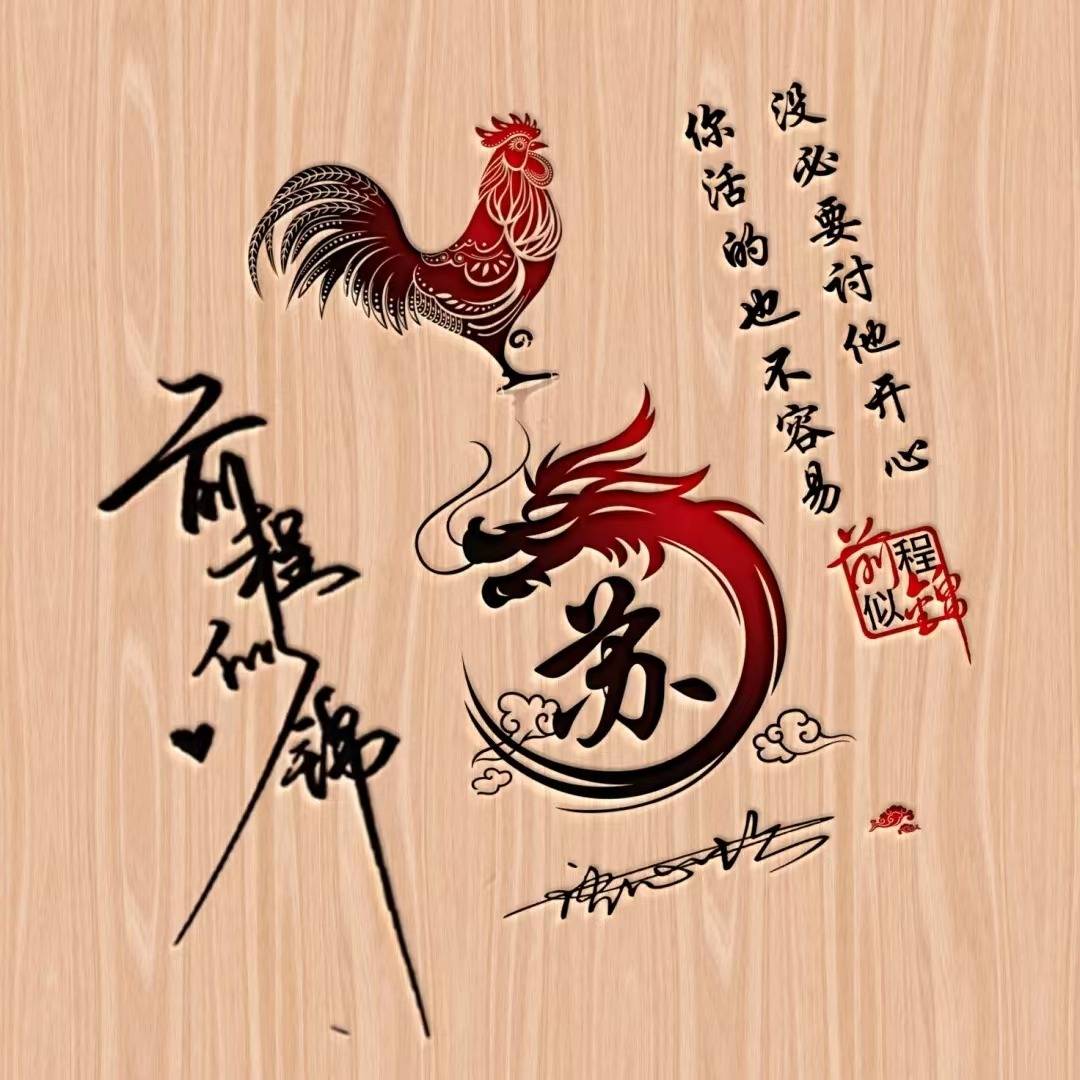 没必要讨他开心
你活的也不容易
前程似锦
前程
似锦
苏